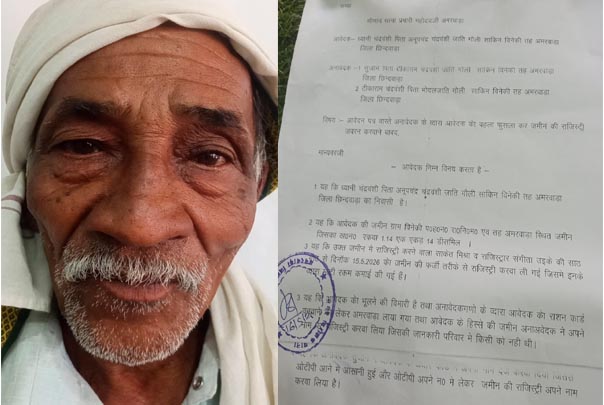 श्रीमान थाना प्रभारी महोदयजी अमरवाड़ा
आवेदक:- ध्यानी चंद्रवंशी पिता अनुपचंद्र चंद्रवंशी जाति गोली साकिन विनेकी तह अमरवाड़ा
जिला छिन्दवाड़ा
अनावेदक:-1 सुजाम पिता टीकाराम चंद्रवंशी जाति गोली साकिन विनेकी तह अमरवाड़ा
जिला छिन्दवाड़ा
2 टीकाराम चंद्रवंशी पिता जाति गोली साकिन विनेकी तह अमरवाड़ा
जिला छिन्दवाड़ा
विषय :- आवेदन पत्र वास्ते अनावेदक के द्वारा आवेदक को बहला फुसला कर जमीन की राजिस्ट्री
करवाने बाबद.
मान्यवरजी
- आवेदक निम्न विनय करता है -
1 यह कि ध्यानी चंद्रवंशी पिता अनुपचंद्र चंद्रवंशी जाति गोली साकिन विनेकी तह अमरवाड़ा
जिला छिन्दवाड़ा का निवासी है।
2 यह कि आवेदक की जमीन ग्राम विनेकी तह अमरवाड़ा स्थित जमीन
जिसका ख0न0 रकबा 1.14 एक एकड़ 14 डीसमिल।
3 यह कि उक्त जमीन में राजिस्ट्री करने वाला साकेत मिश्रा व राजिस्ट्रार संगीता उइके की साठ
से दिनॉक 15.5.2026 को जमीन की फर्जी तरीके से राजिस्ट्री करवा ली गई जिसमे इनके
रकम कमाई की गई है।
3 यह कि आवेदक को भूलने की बिमारी है तथा अनावेदकगणों के द्वारा आवेदक को राशन कार्ड
लेकर अमरवाड़ा लाया गया तथा आवेदक के हिस्से की जमीन अनावेदक ने अपने
नाम राजिस्ट्री करवा लिया जिसकी जानकारी परिवार मे किसी को नही थी।
ओटीपी आने में आसानी हुई और ओटीपी अपने न0 मे लेकर जमीन की राजिस्ट्री अपने नाम
करवा लिया है।